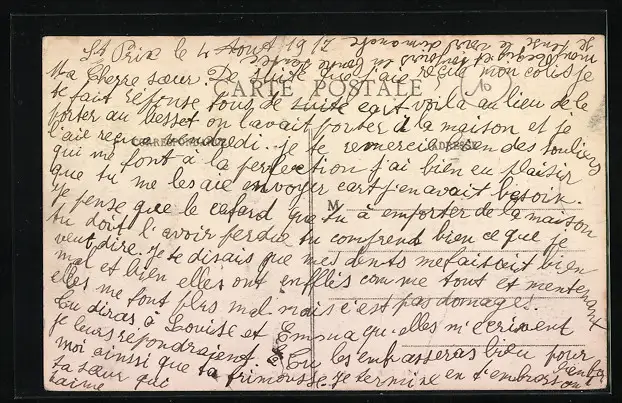 St Prix le 4 Aout 1917
Ma Cherre sœur. De suite que j'aie reçua mon colis je
te fait réponse tous de suite cart voilà au lieu de le
porter au Besset on l'avait porter à la maison et je
CARTE POSTALE
l'aie reçua je te remercie bien des souliers
CORRESPONDANCE
ADRESSE
qui me font à la perfection j'ai bien eu plaisir
que tu me les aie envoyer cart j'en avait besoin.
Je pense que le cafard que tu à emporter de la maison
M
tu doit l'avoir perdue tu comprend bien ce que je
veut dire. Je te disais que mes dents me faisait bien
mal et bien elles ont enflés comme tout et mentenant
elles me font plus mal mais c'est pas domages.
Tu diras à Lovise et Emma qu-elles m'ecrivent
je leurs répondrai Tu les embrasseras bien pour
moi ainsi que ta frimousse. Je termine en t'embrassant
ta sœur que
t'aime
Je pense le revoir dimanche
en bonne santée